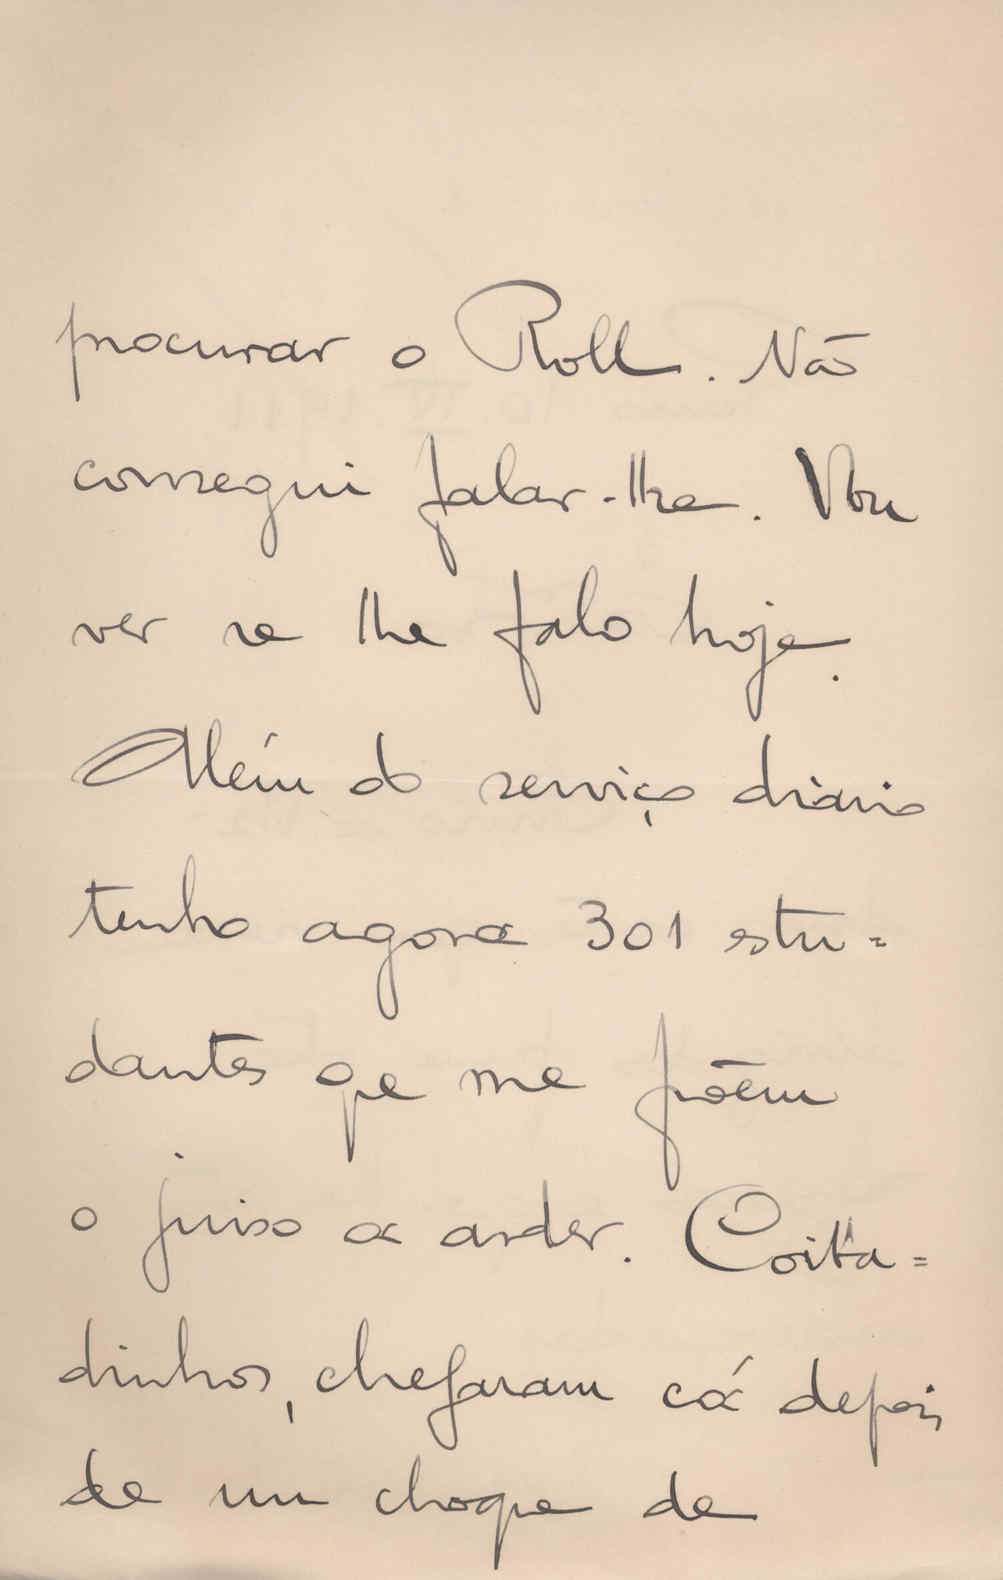 procurar o Roll. Não
consegui falar-lhe. Vou
ver se lhe falo hoje.
Além do serviço diario
tenho agora 301 estu=
dantes qe me põem
o juiso a arder. Coita=
dinhos, chegaram cá depois
de um choqe de